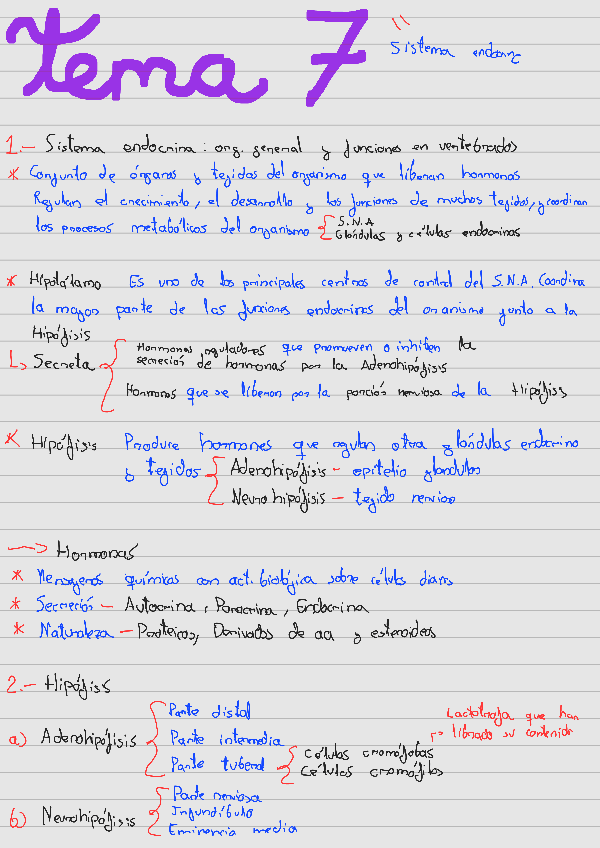 Tema 7
Sistema endocrino
1.- Sistema endocrina: org. general y funciones en vertebrados
* Conjunto de órganos y tejidos del organismo que liberan hormonas
Regulan el crecimiento, el desarrollo y las funciones de muchos tejidos, y coordinan
los procesos metabólicos del organismo
S.N.A
Glándulas y células endocrinas
* Hipotálamo Es uno de los principales centros de control del S.N.A. Coordina
la mayor parte de las funciones endocrinas del organismo junto a la
Hipófisis
↳ Secreta
Hormonas reguladoras que promueven o inhiben la
secreción de hormonas por la Adenohipófisis
Hormonas que se liberan por la porción nerviosa de la Hipófisis
* Hipófisis Produce hormonas que regulan otra glándulas endocrino
y tejidos
Adenohipófisis - epitelio glandular
Neurohipófisis - tejido nervioso
→ Hormonas
* Mensajeros químicos con act. biológica sobre células dianas
* Secreción - Autocrina, Paracrina, Endocrina
* Naturaleza - Proteicos, Derivados de aa y esteroideos
2.- Hipófisis
a) Adenohipófisis
Parte distal
Parte intermedia
Parte tuberal
Células cromófobas
Células cromófilas
que han
librado su contenido
b) Neurohipófisis
Parte nerviosa
Infundíbulo
Eminencia media